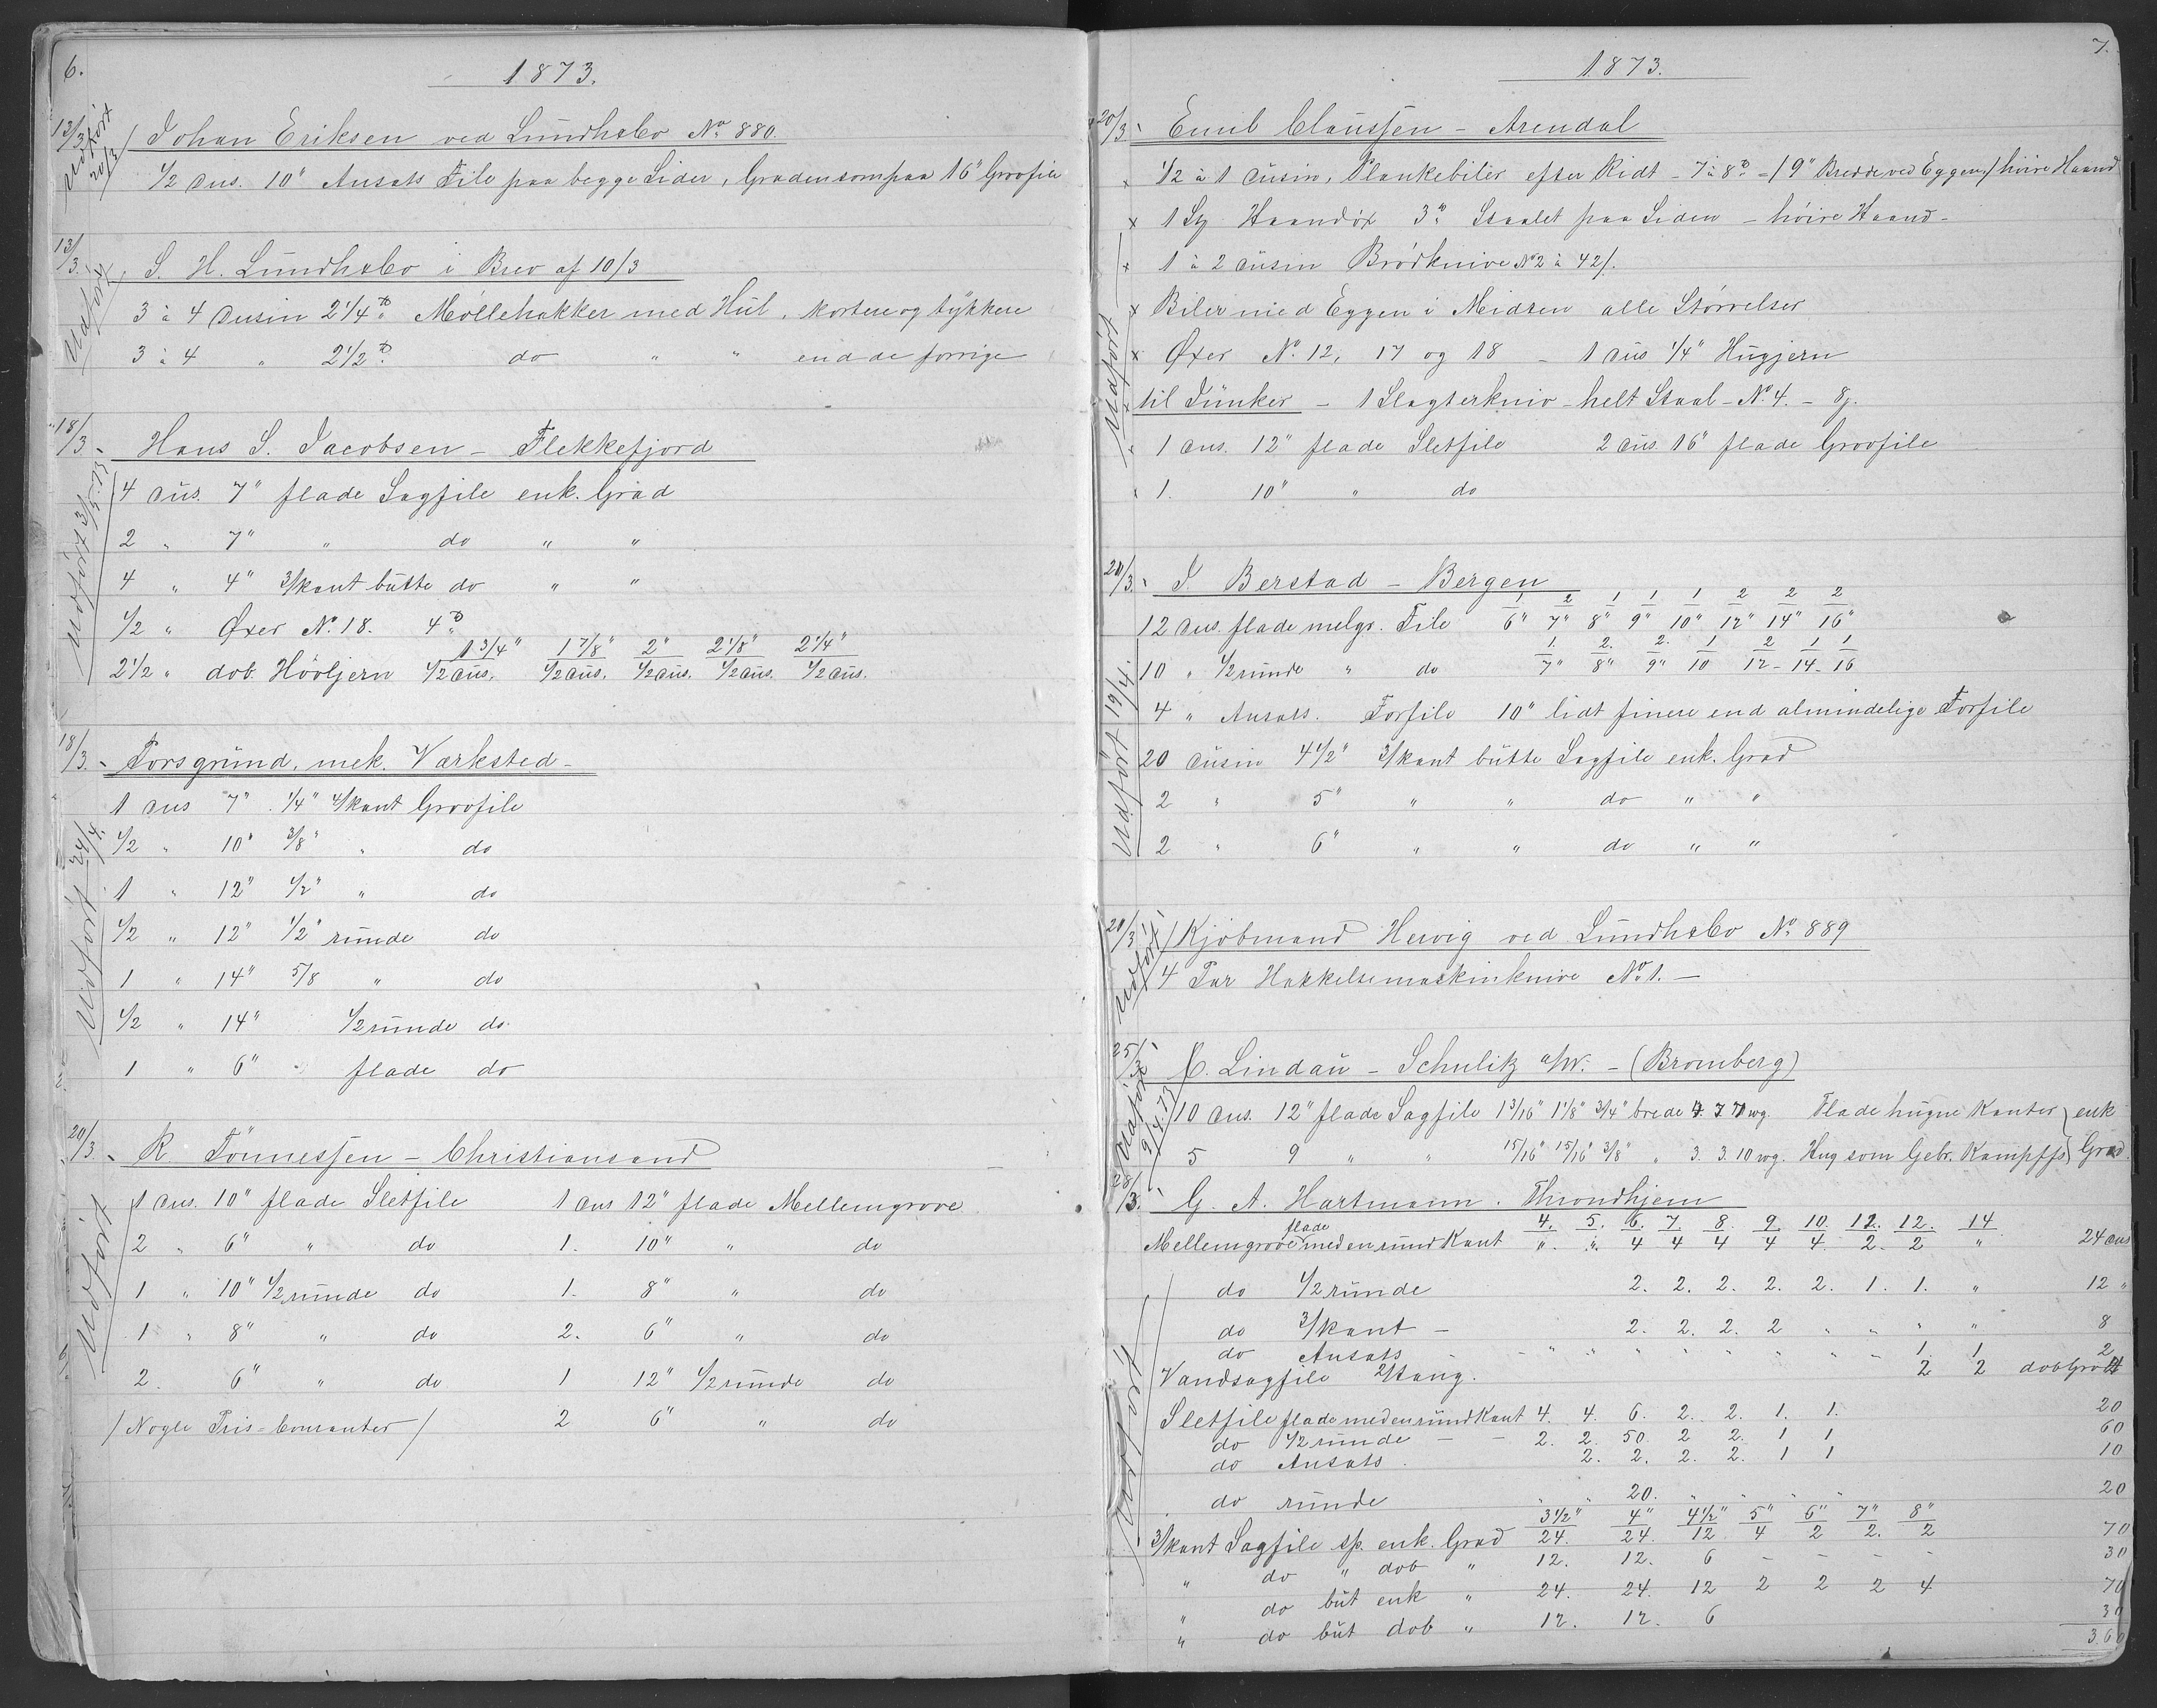 6.
1873.
13/3 Johan Eriksen ved Lundhsbo No 880.
Udført 20/3
1/2 dus. 10" Ansats File paa begge Sider, Graden som paa 16" Groofile
13/3. S. H. Lundhsbo i Brev af 10/3
Udført
3 à 4 Dusin 2 1/4 ℔ Møllehakker med Hul, kortere og tykkere
3 à 4 " 2 1/2 ℔ do " " end de forrige
18/3 - Hans S. Jacobsen - Flekkefjord
Udført 3/5.73
4 dus. 7" flade Sagfile enk. Grad
2 " 7" " do " "
4 " 4" 3/kant butte do " "
1/2 " Øxer No. 18. 4 ℔
1 3/4" 1 7/8" 2" 2 1/8" 2 1/4"
2 1/2 " dob. Høvljern 1/2 dus. 1/2 dus. 1/2 dus. 1/2 dus. 1/2 dus.
18/3. - Porsgrund. mek. Værksted -
Udført 24/4.
1 dus 7" 1/4" 4/kant Groofile
1/2 " 10" 3/8" " do
1 " 12" 1/2" " do
1/2 " 12" 1/2" runde do
1 " 14" 5/8 " do
1/2 " 14" 1/2 runde do
1 " 6" flade do
20/3. - R. Tønnessen - Christiansand
Udført
1 dus. 10" flade Sletfile 1 dus 12" flade Mellemgrove
2 " 6" " do 1. 10" " do
1 " 10" 1/2 runde do 1. 8" " do
1 " 8" " do 2. 6" " do
2. 6" " do 1 12" 1/2 runde do
/ Nogle Pris-Couranter / 2 6" " do
7.
1873.
20/3. Emil Claussen - Arendal
x 1/2 à 1 Dusin, Plankebiler efter Ridt - 7 à 8 ℔ = / 9" Bredde ved Eggen / høire Haand
x 1 St Haandøx 3 ℔ Staalet paa Siden - høire Haand -
x 1 à 2 Dusin Brødknive No 2 à 42/.
Udført
x Biler med Eggen i Midten alle Størrelser
x Øxer No. 12, 17 og 18 - 1 dus 1/4" Hugjern
til Junker - 1 Slagterkniv - helt Staal - No. 4. - 8/.
1 dus. 12" flade Sletfile 2 dus. 16" flade Groofile
x 1. 10" " do
20/3. J. Berstad - Bergen
1 2 1 1 1 2 2 2
12 dus. flade melgr. File 6" 7" 8" 9" 10" 12" 14" 16"
1. 2. 2. 1 2 1 1
10 " 1/2 runde " do 7" 8" 9" 10 12 - 14 - 16
Udført 19/4.
4 " Ansats. Forfile 10" lidt finere end almindelige Forfile
20 Dusin 4 1/2" 3/kant butte Sagfile enk. Grad
2 " 5" " " do " "
2 " 6" " " do " "
20/3 / Kjøbmand Hervig ved Lundhsbo No. 889
Udført
4 Par Hakkelsemaskinknive No 1. -
25/3 C. Lindau - Schulitz a/W. - (Bromberg)
Udført 9/4.73
10 dus. 12" flade Sagfile 1 3/16" 1 1/8" 3/4" brede 7 wg. Flade hugne Kanter } enk
5 9 " " 15/16" 15/16" 3/8" " 3. 3. 10 wg. Hug som Gebr. Kampffs } Grad.
28/3. G. A. Hartmann. Throndhjem
4. 5. 6. 7. 8. 9. 10. 12. 12. 14
Mellemgrove flade med en rund Kant " " 4 4 4 4 4. 2. 2 " 24 dus
Udført
do 1/2 runde 2. 2. 2. 2. 2. 1. 1. " 12 "
do 3/kant - 2. 2. 2. 2 " " " " 8
do Ansats - " " " " " " " 1 1 2
Vandsagfile 2/tang. 2 2 dob Grad 4
Sletfile flade med en rund Kant 4. 4. 6. 2. 2. 1. 1. 20
do 1/2 runde - - 2. 2. 50. 2 2. 1 1 60
do Ansats. 2. 2. 2. 2. 1 1 10
do runde " " 20. " " " " 20
3 1/2" 4" 4 1/2" 5" 6" 7" 8"
3/kant Sagfile sp. enk. Grad 24. 24. 12 4 2 2. 2 70
" do " dob " 12. 12. 6 - - - - 30
" do but enk " 24. 24. 12 2 2 2 4 70
" do but dob " 12. 12. 6 30
360